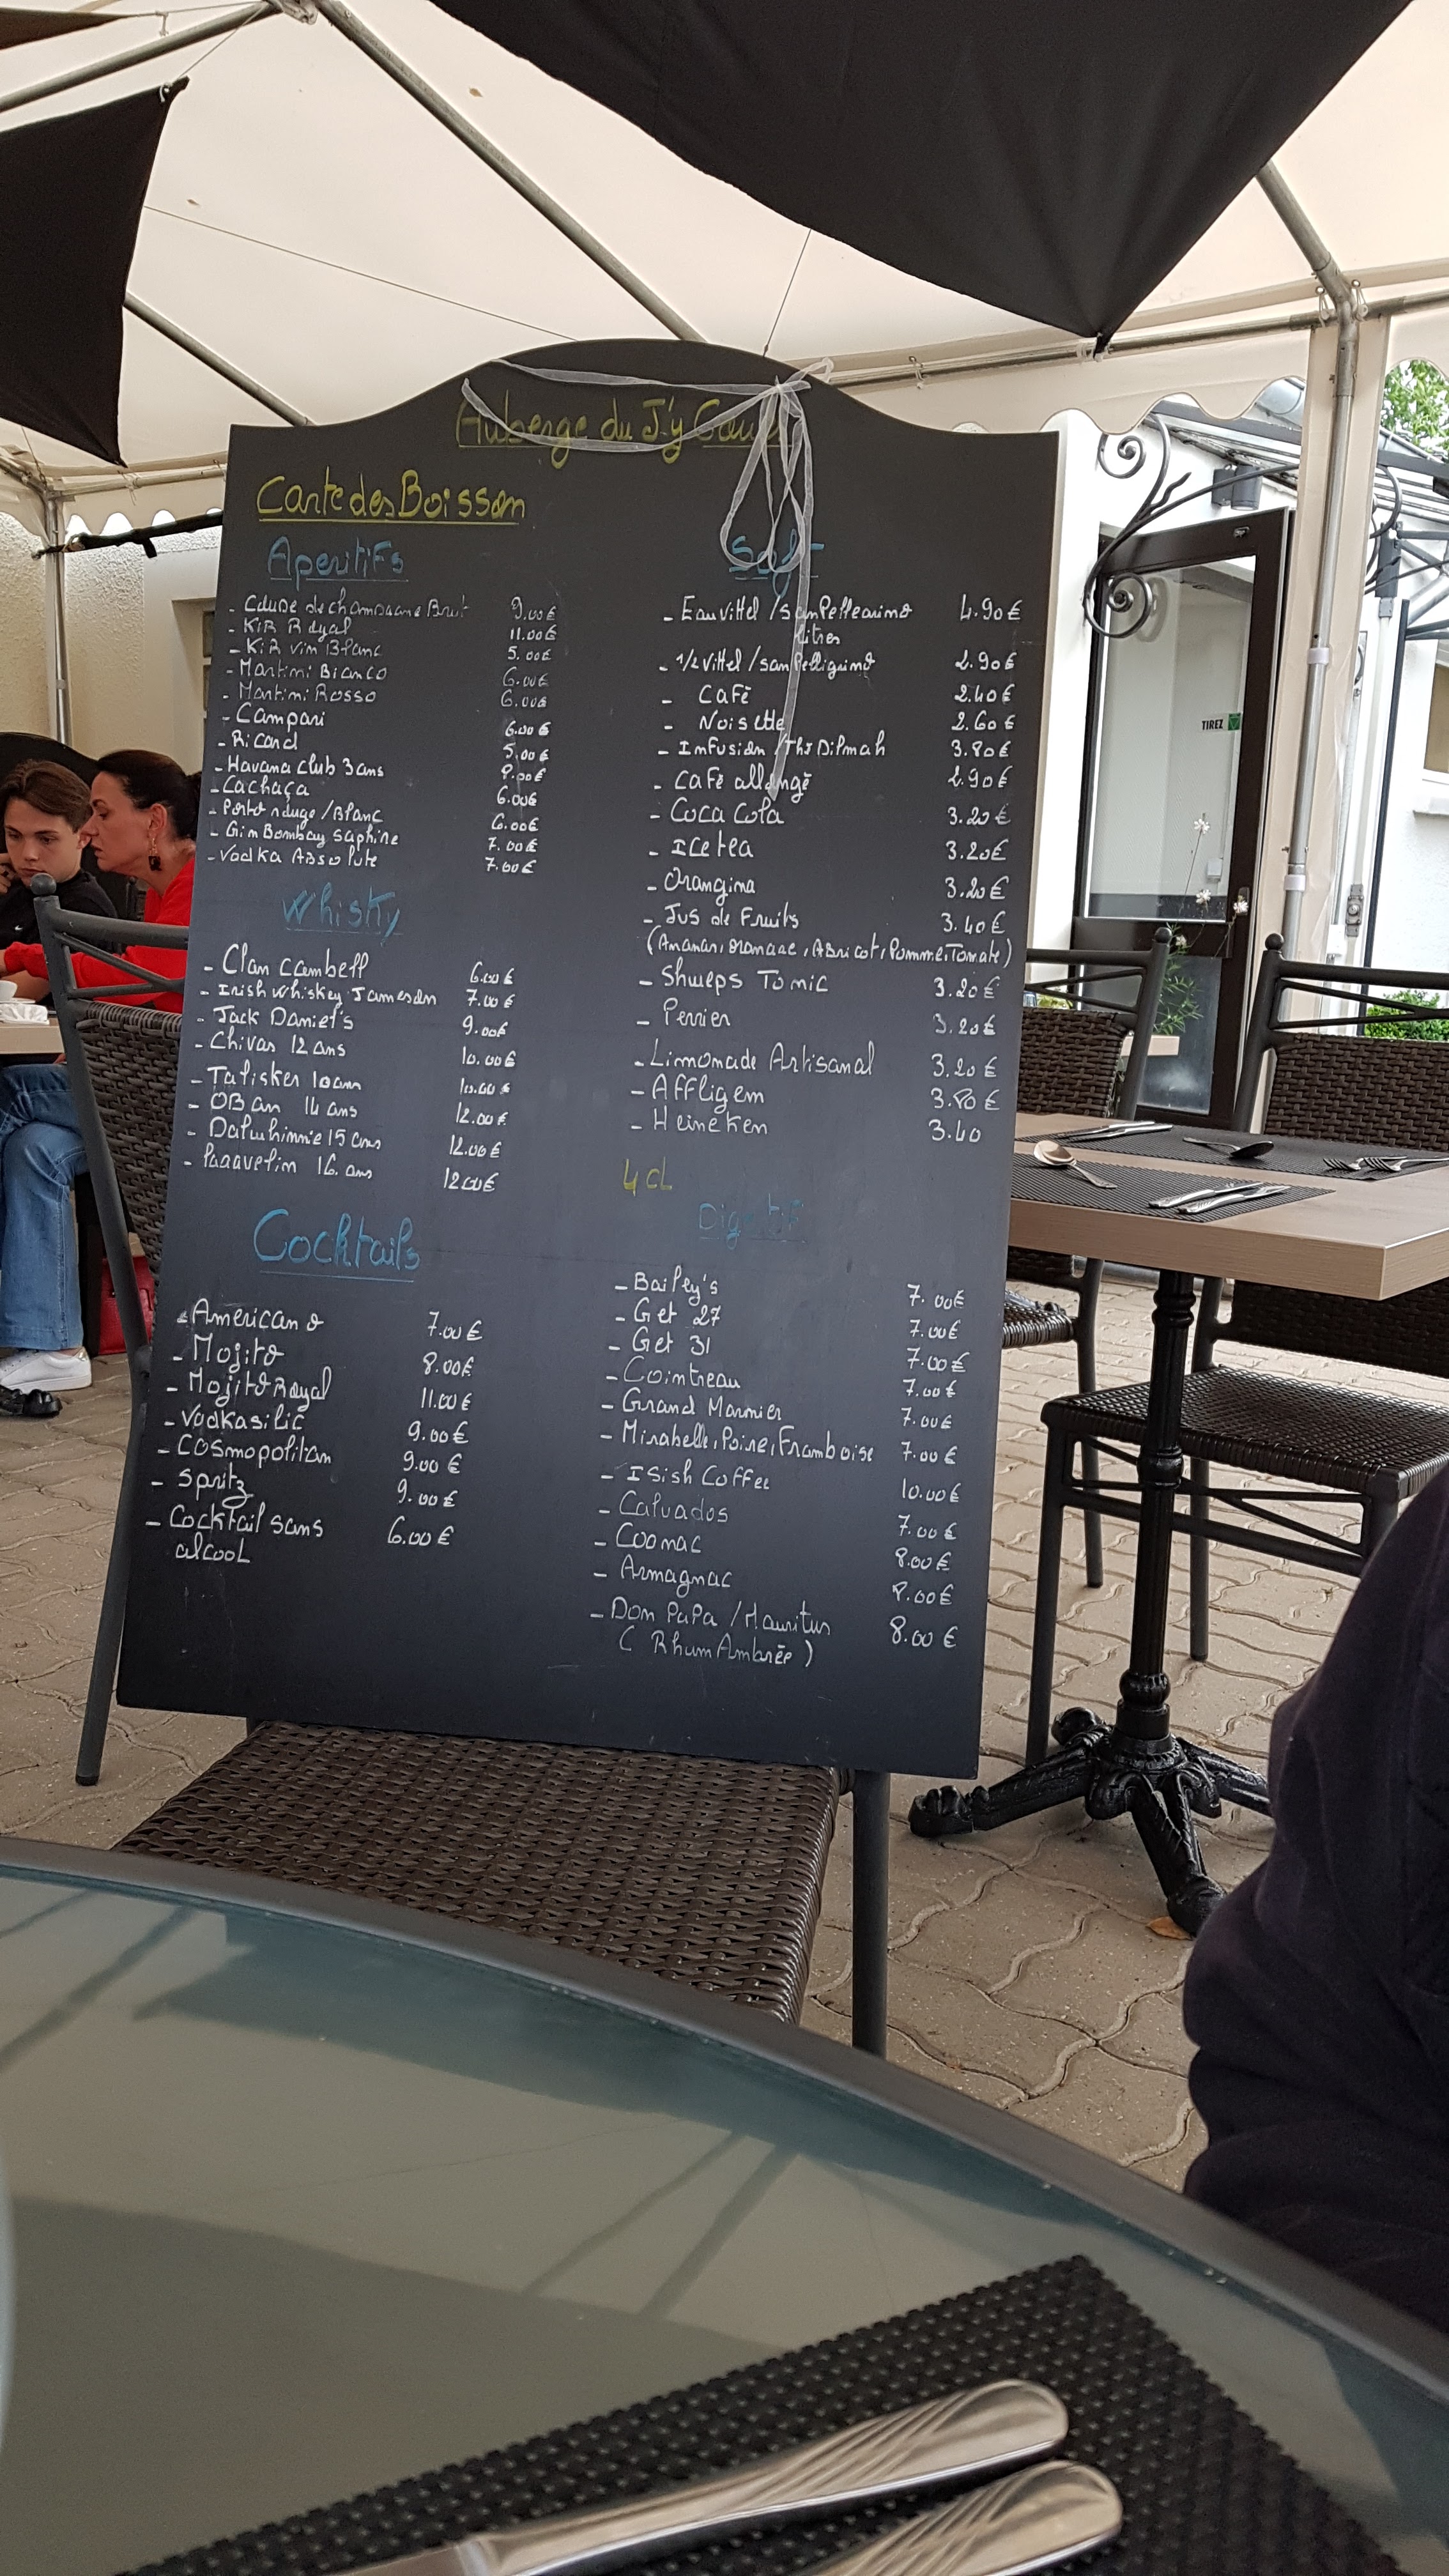 Auberge du J'y Cours
Carte des Boisson
Aperitifs
- Coupe de champagne Brut 9.00€
- KiR Royal 11.00€
- KiR vin Blanc 5.00€
- Martini Bianco 6.00€
- Martini Rosso 6.00€
- Campari 6.00€
- Ricard 5.00€
- Havana club 3ans 8.00€
- Cachaça 6.00€
- Porto rouge/Blanc 6.00€
- Gin Bombay Saphire 7.00€
- Vodka Absolute 7.00€
Whisky
- Clan Cambell 6.00€
- Irish whiskey Jameson 7.00€
- Jack Daniel's 9.00€
- Chivas 12 ans 10.00€
- Talisker 10ans 10.00€
- OBan 14 ans 12.00€
- Daluhinnie 15 ans 12.00€
- 16. ans 12.00€
Cocktails
- Americano 7.00€
- Mojito 8.00€
- Mojito Royal 11.00€
- Vodkasilic 9.00€
- Cosmopolitan 9.00€
- Spritz 9.00€
- Cocktail sans 6.00€
alcool
Soft
- Eau Vittel / San Pellegrino 4.90€
litres
- 1/2 Vittel / San Pelligrino 2.90€
- Café 2.40€
- Noisette 2.60€
- Infusion / Thé Dilmah 3.80€
- Café allongé 2.90€
- Coca Cola 3.20€
- Ice tea 3.20€
- Orangina 3.20€
- Jus de Fruits 3.40€
(Ananas, orange, Abricot, Pomme, Tomate)
- Shweps Tonic 3.20€
- Perrier 3.20€
- Limonade Artisanal 3.20€
- Affligem 3.80€
- Heineken 3.40
4 cL
Digestif
- Bailey's 7.00€
- Get 27 7.00€
- Get 31 7.00€
- Cointreau 7.00€
- Grand Marnier 7.00€
- Mirabelle, Poire, Framboise 7.00€
- Irish Coffee 10.00€
- Calvados 7.00€
- Cognac 8.00€
- Armagnac 8.00€
- Don PaPa / Mauritus 8.00€
( Rhum Ambrée )
TIREZ